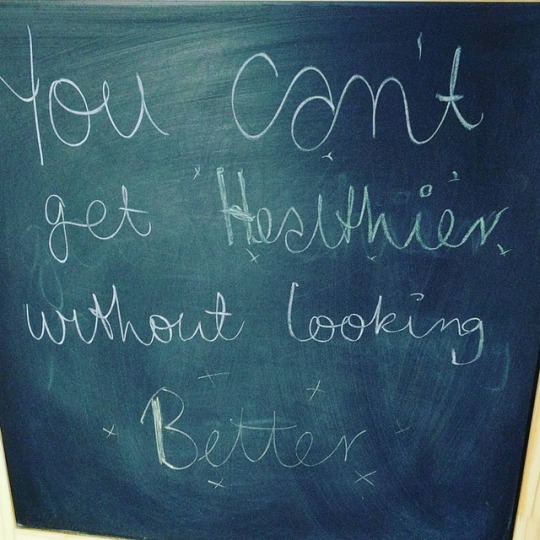 You Can't
get Healthier
without looking
Better